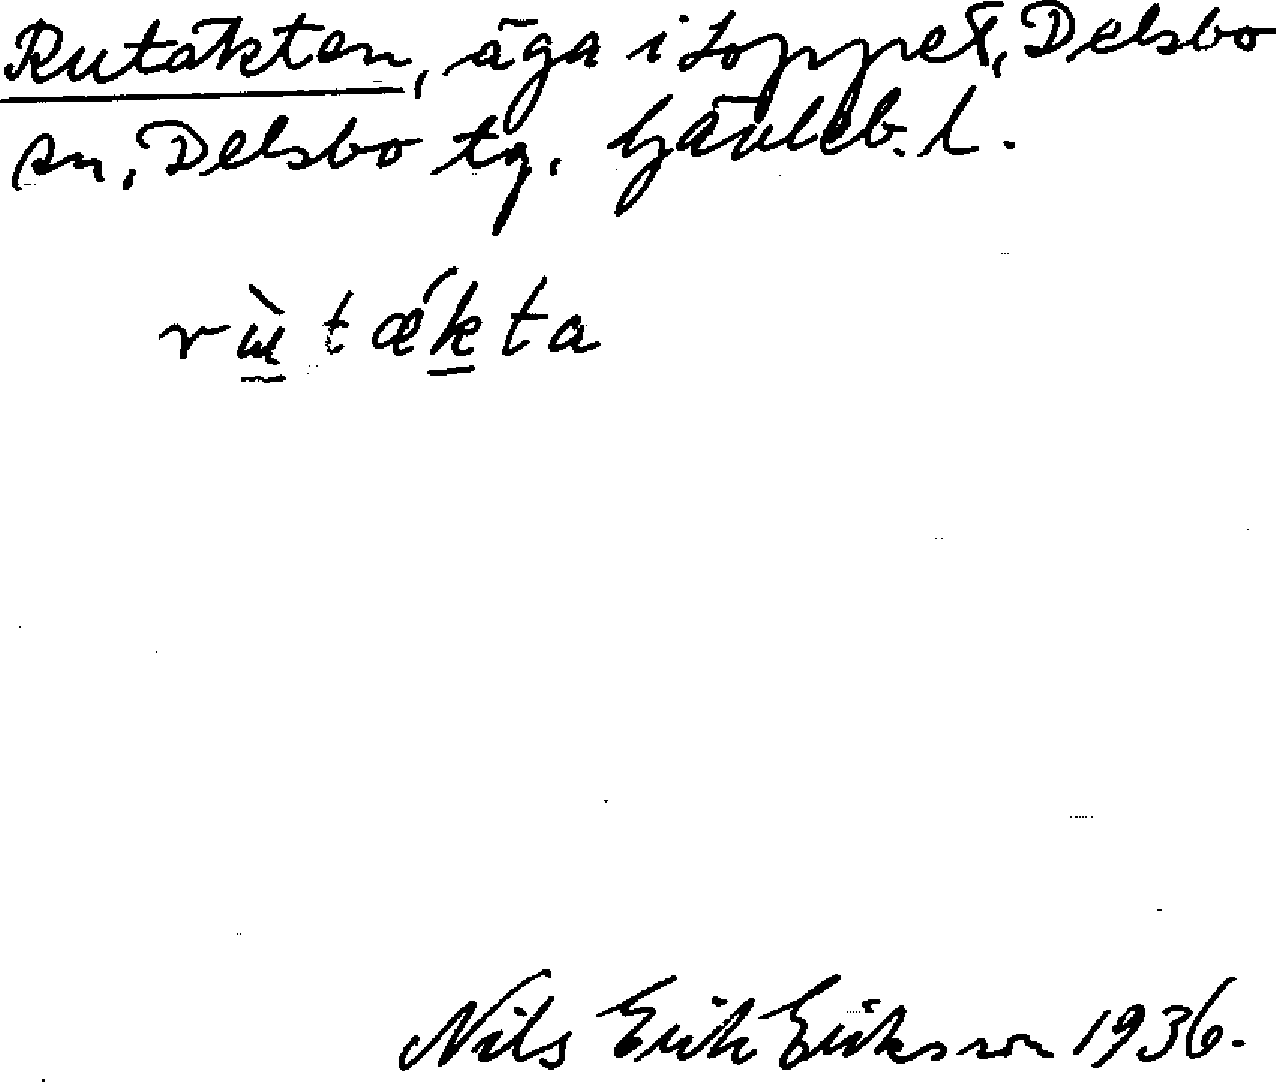 Rutäkten, äga i Loppet, Delsbo
sn, Delsbo tg. Gävleb. l.
rùtǽkta
Nils Erik Eriksson 1936.